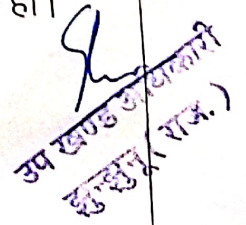 हो।
उप खण्ड अधिकारी
झुन्झुनू (राज.)